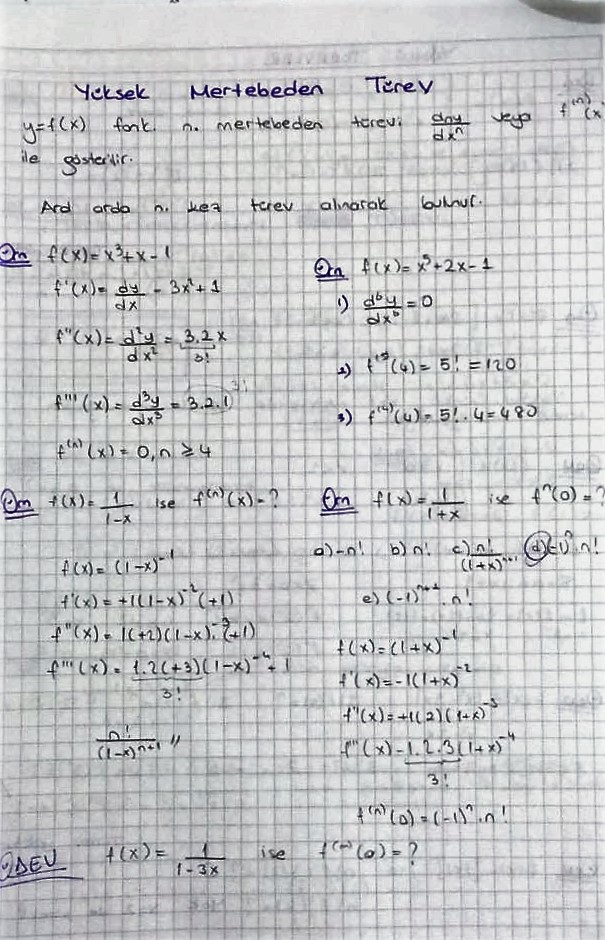 Yüksek Mertebeden Türev
y=f(x) fonk. n. mertebeden türevi dny/dxⁿ veya f⁽ⁿ⁾(x
ile gösterilir.
Ard arda n. kez türev alınarak bulunur.
Örn f(x)=x³+x-1
f'(x)= dy/dx = 3x²+1
f''(x)= d²y/dx² = 3.2x
3!
f'''(x)= d³y/dx³ = 3.2.1 3!
f⁽ⁿ⁾(x)=0, n ≥4
Örn f(x)=x⁵+2x-1
1) d⁶y/dx⁶ =0
2) f⁽⁵⁾(4)= 5! =120
3) f⁽⁴⁾(4)= 5!.4=480
Örn f(x)= 1/(1-x) ise f⁽ⁿ⁾(x)=?
f(x)= (1-x)⁻¹
f'(x)= +1(1-x)⁻²(+1)
f''(x)= 1(+2)(1-x)⁻³(+1)
f'''(x)= 1.2(+3)(1-x)⁻⁴+1
3!
n!/(1-x)ⁿ⁺¹ //
Örn f(x)= 1/(1+x) ise fⁿ(0)=?
a)-n! b) n! c) n!/(1+x)ⁿ⁺¹ d)(-1)ⁿ.n!
e) (-1)ⁿ⁺¹.n!
f(x)=(1+x)⁻¹
f'(x)=-1(1+x)⁻²
f''(x)=+1(2)(1+x)⁻³
f'''(x)-1.2.3(1+x)⁻⁴
3!
f⁽ⁿ⁾(0)=(-1)ⁿ.n!
ÖDEV f(x)= 1/(1-3x) ise f⁽ⁿ⁾(0)=?